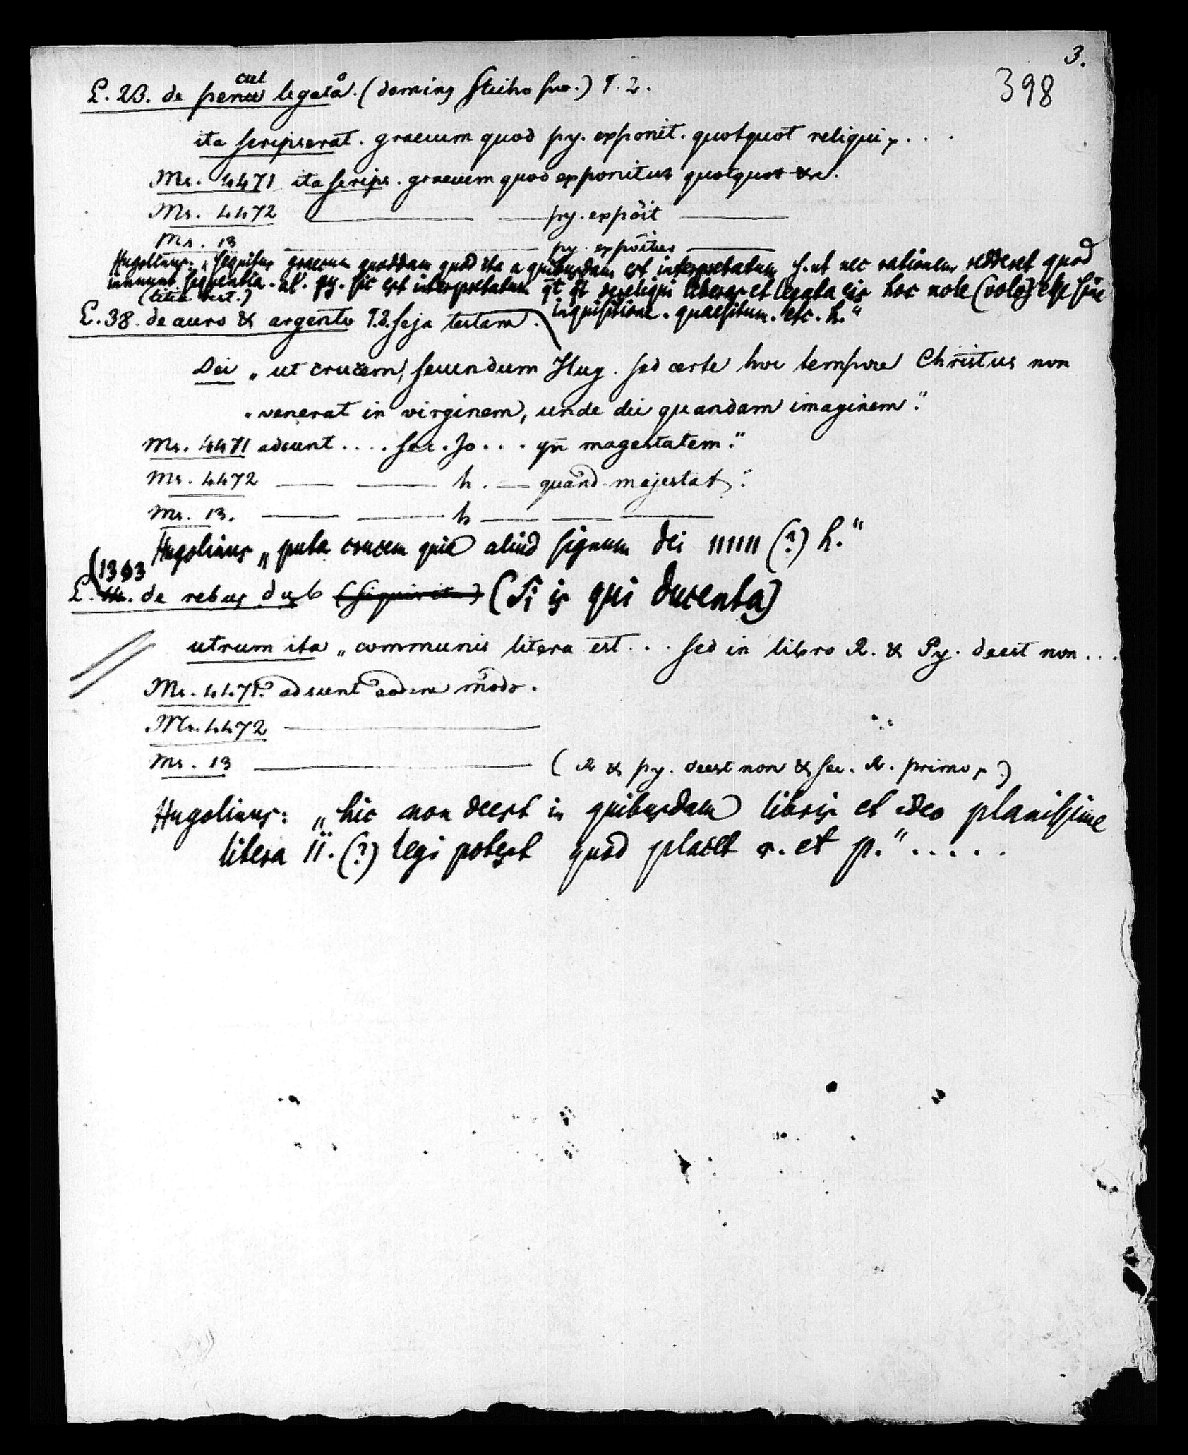 3.
398
L. 23. de pecul legatâ. (dominus Stichus suo.) T. 2.
ita scripserat. graecum quod py. exponit. quotquot reliqui
Ms. 4471 ita scrips. graecum quod exponitur quotquot &c.
Ms. 4472 py. expōit
Ms. 13 py. expōitur
Hugolinus: „sequitur graecum quoddam quod ita a quibusdam est interpretatum s. ut nec rationem redderet quod
innuunt sequentia. al. py. sic est interpretatum reliqui liberos et legata eis hoc nole (volo) esse sine
inquisitione. quaesitum. etc. h."
L. 38. de auro & argento T. 2. Seja testam.
Dei „ut crucem, secundum Hug. sed certe hoc tempore Christus non
„venerat in virginem, unde dic quandam imaginem."
Ms. 4471 adsunt .... sec. Jo... magestatem."
Ms. 4472 h. quand. majestat."
Ms. 13. h
Hugolinus „puta crucem quia aliud signum dei ıııııı (?) h."
(1393
L. de rebus dub (Si is qui ducenta)
utrum ita „communis litera est... sed in libro R. & Py. deest non...
Ms. 4471. adsunt eodem modo.
Ms. 4472
Ms. 13 (R & py. deest non & sec. R. primo)
Hugolinus: „hic non deest in quibusdam libris et ideo planissime
litera ıı. (?) legi potest quod placet r. et p." .....